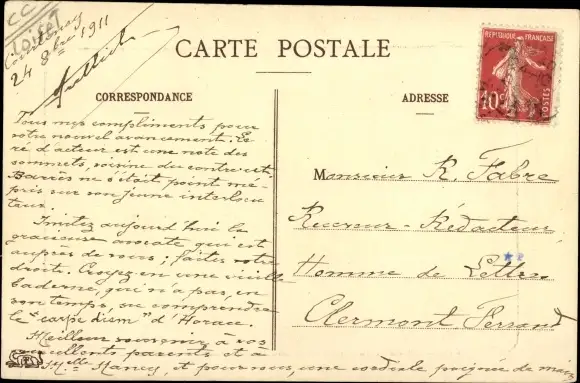 CC
LOIRET
Courtenay
24 8bre 1911
CARTE POSTALE
CORRESPONDANCE
ADRESSE
REPUBLIQUE FRANÇAISE
10c
POSTES
Tous mes compliments pour
votre nouvel avancement. Le
ré d'acteur est une note des
sommets, voisine du contre-ut.
Barrès ne s'était point mé-
pris sur son jeune interlocu
teur.
Imitez aujourd'hui la
gracieuse avocate qui est
auprès de vous; faites votre
droit. Croyez en une vieille
baderne, qui n'a pas, en
son temps, su comprendre
le "carpe diem" d'Horace.
Meilleur souvenir à vos
excellents parents et à
Melle Nancy, et pour vous, une cordiale poignée de main
Monsieur R. Fabre
Receveur-Rédacteur
Homme de Lettres
Clermont Ferrand